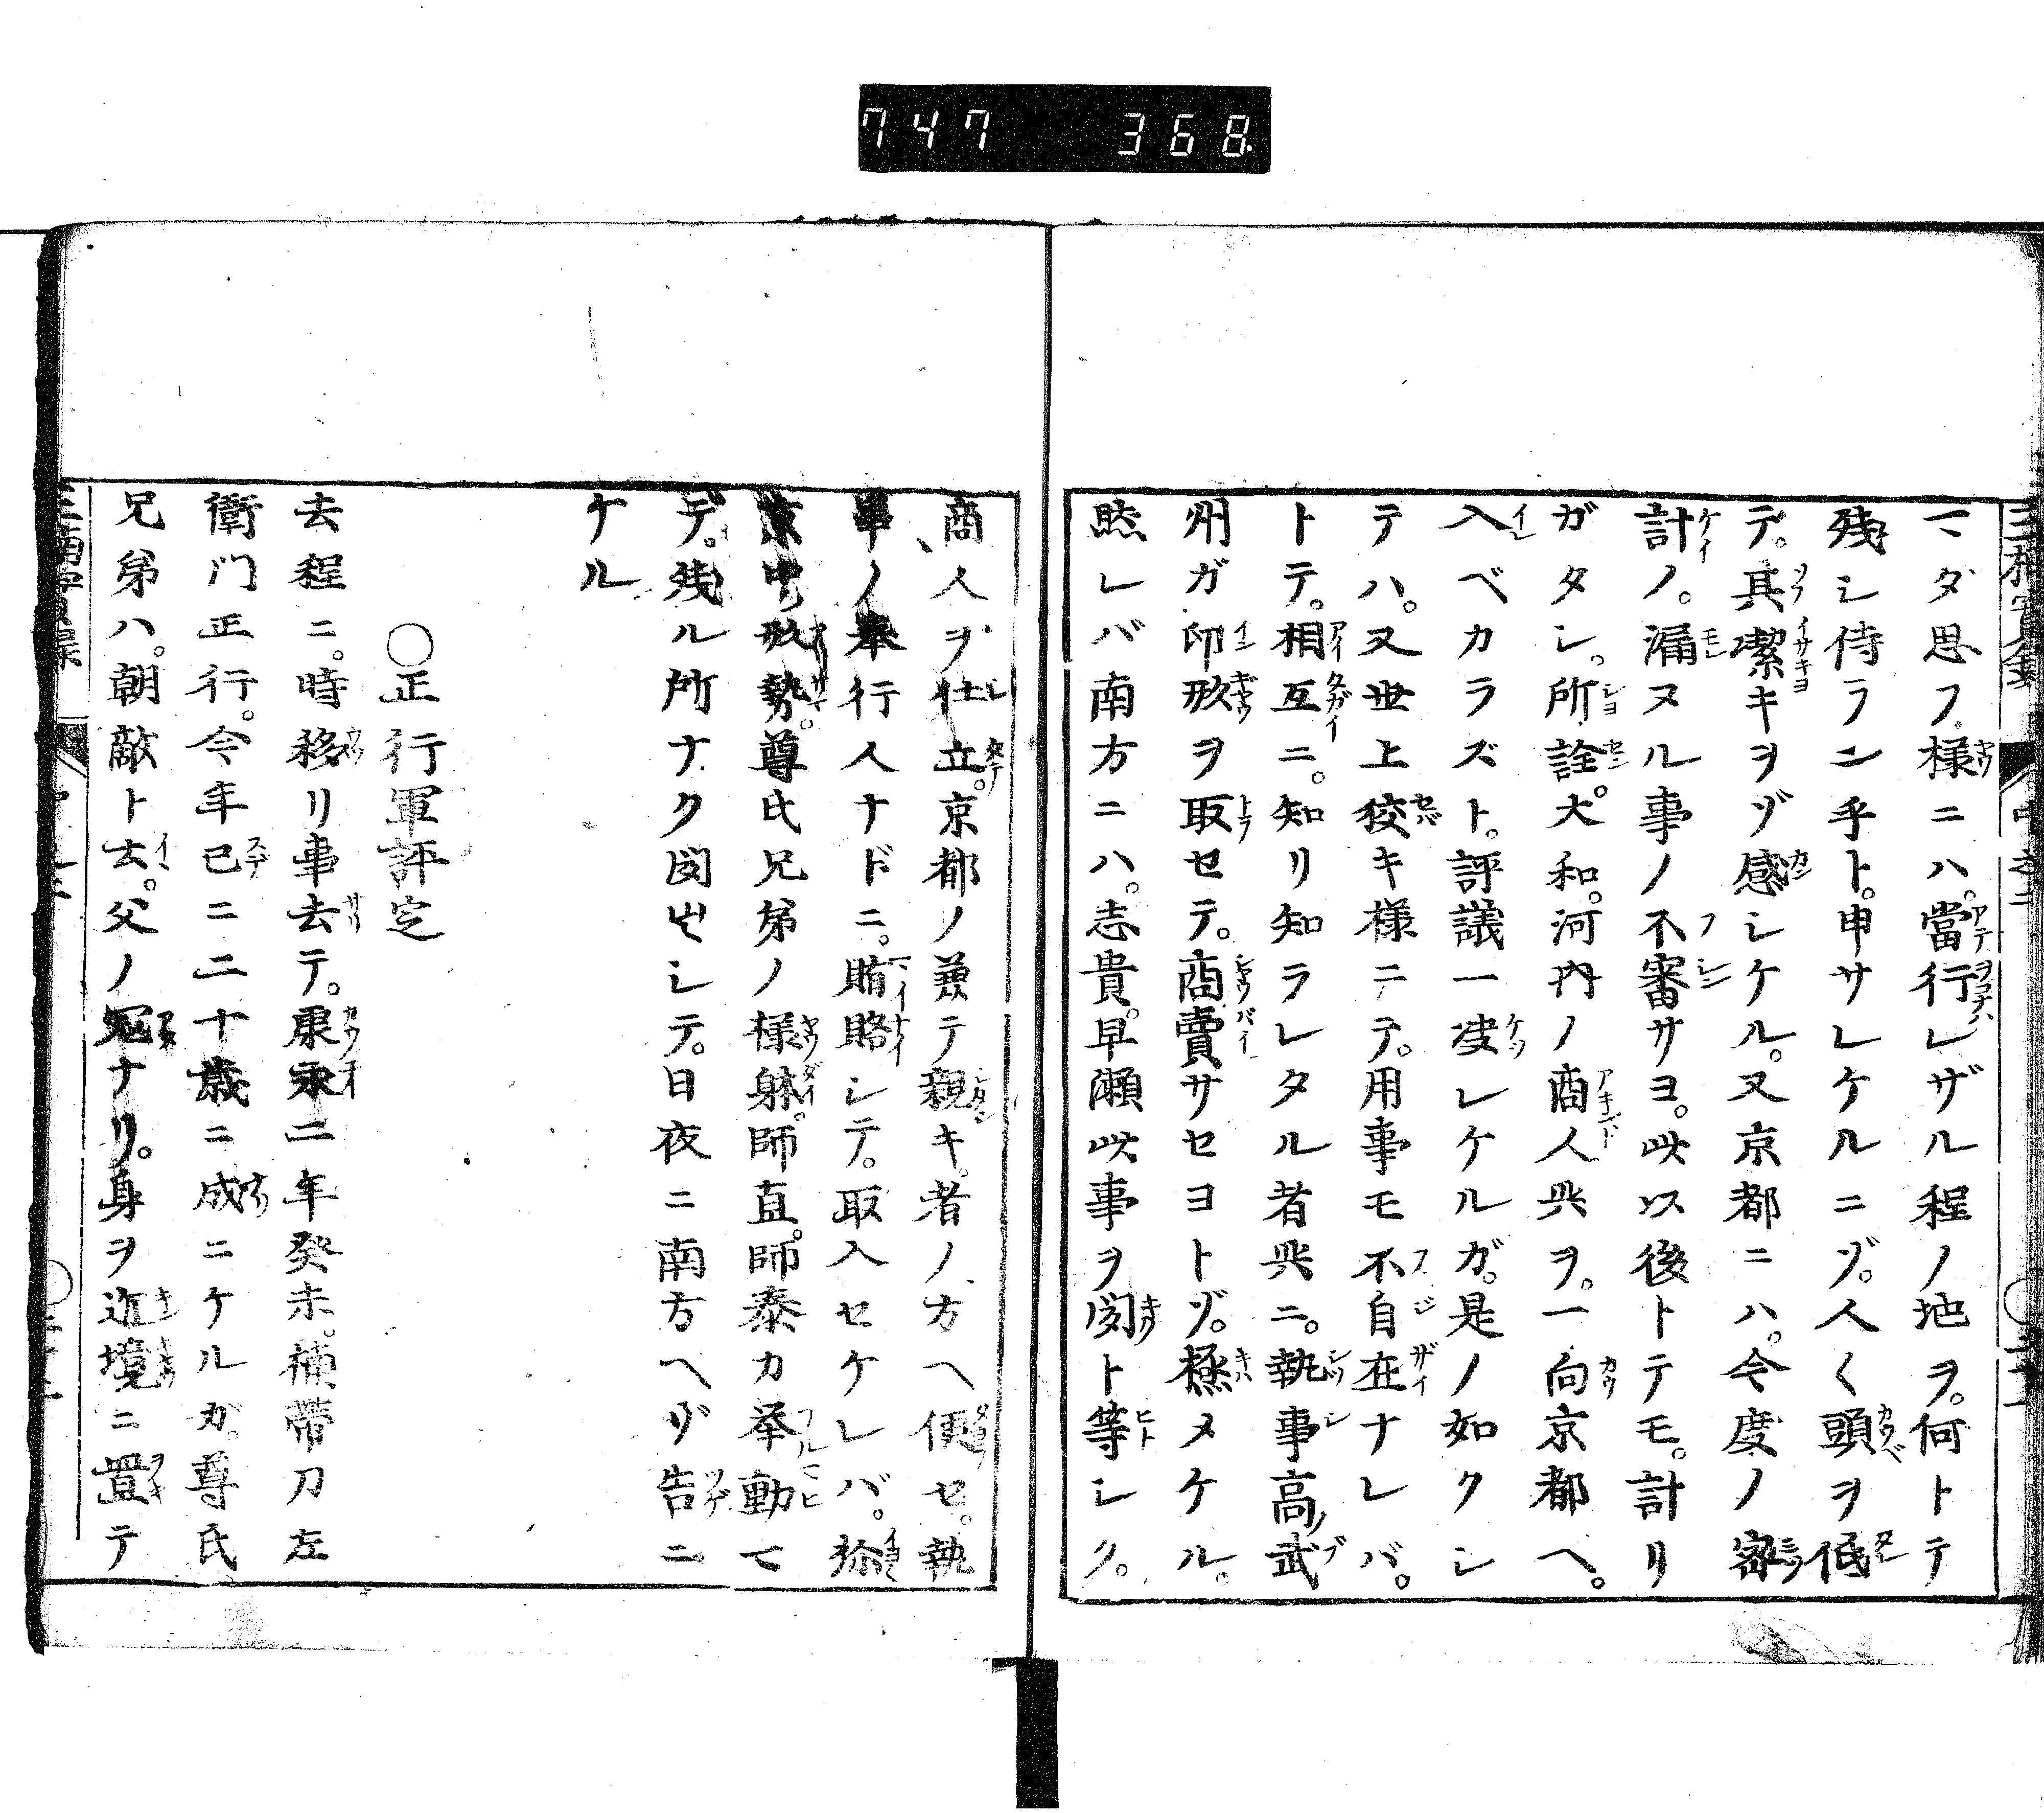 747 368
マダ思フ様ニハ。當行レザル程ノ地ヲ。何トテ
残シ侍ラン乎ト。申サレケルニゾ。人〱頭ヲ低
テ。其潔キヲゾ感シケル。又京都ニハ。今度ノ密
計ノ。漏ヌル事ノ不審サヨ。此以後トテモ。計リ
ガタシ。所詮。大和。河内ノ商人共ヲ。一向京都ヘ。
入ベカラズト。評議一决レケルガ。是ノ如クシ
テハ。又世上狡キ様ニテ。用事モ不自在ナレバ。
トテ。相互ニ。知リ知ラレタル者共ニ。執事高武
州ガ印形ヲ取セテ。商賣サセヨトゾ。極メケル。
然レバ南方ニハ。志貴。早瀬此事ヲ聞ト等シク。
商人ヲ仕立。京都ノ兼テ親キ者ノ方ヘ便セ。執
事ノ奉行人ナドニ。賄賂シテ。取入セケレバ。
京中形勢。尊氏兄弟ノ様躰。師直。師泰カ挙動マ
デ。残ル所ナク聞出シテ。日夜ニ南方ヘゾ告ニ
ケル
〇正行軍評定
去程ニ。時移リ事去テ。康永二年癸未。補帶刀左
衛門正行。今年已ニ二十歳ニ成ニケルガ。尊氏
兄弟ハ。朝敵ト云。父ノ冤ナリ。身ヲ近境ニ置テ